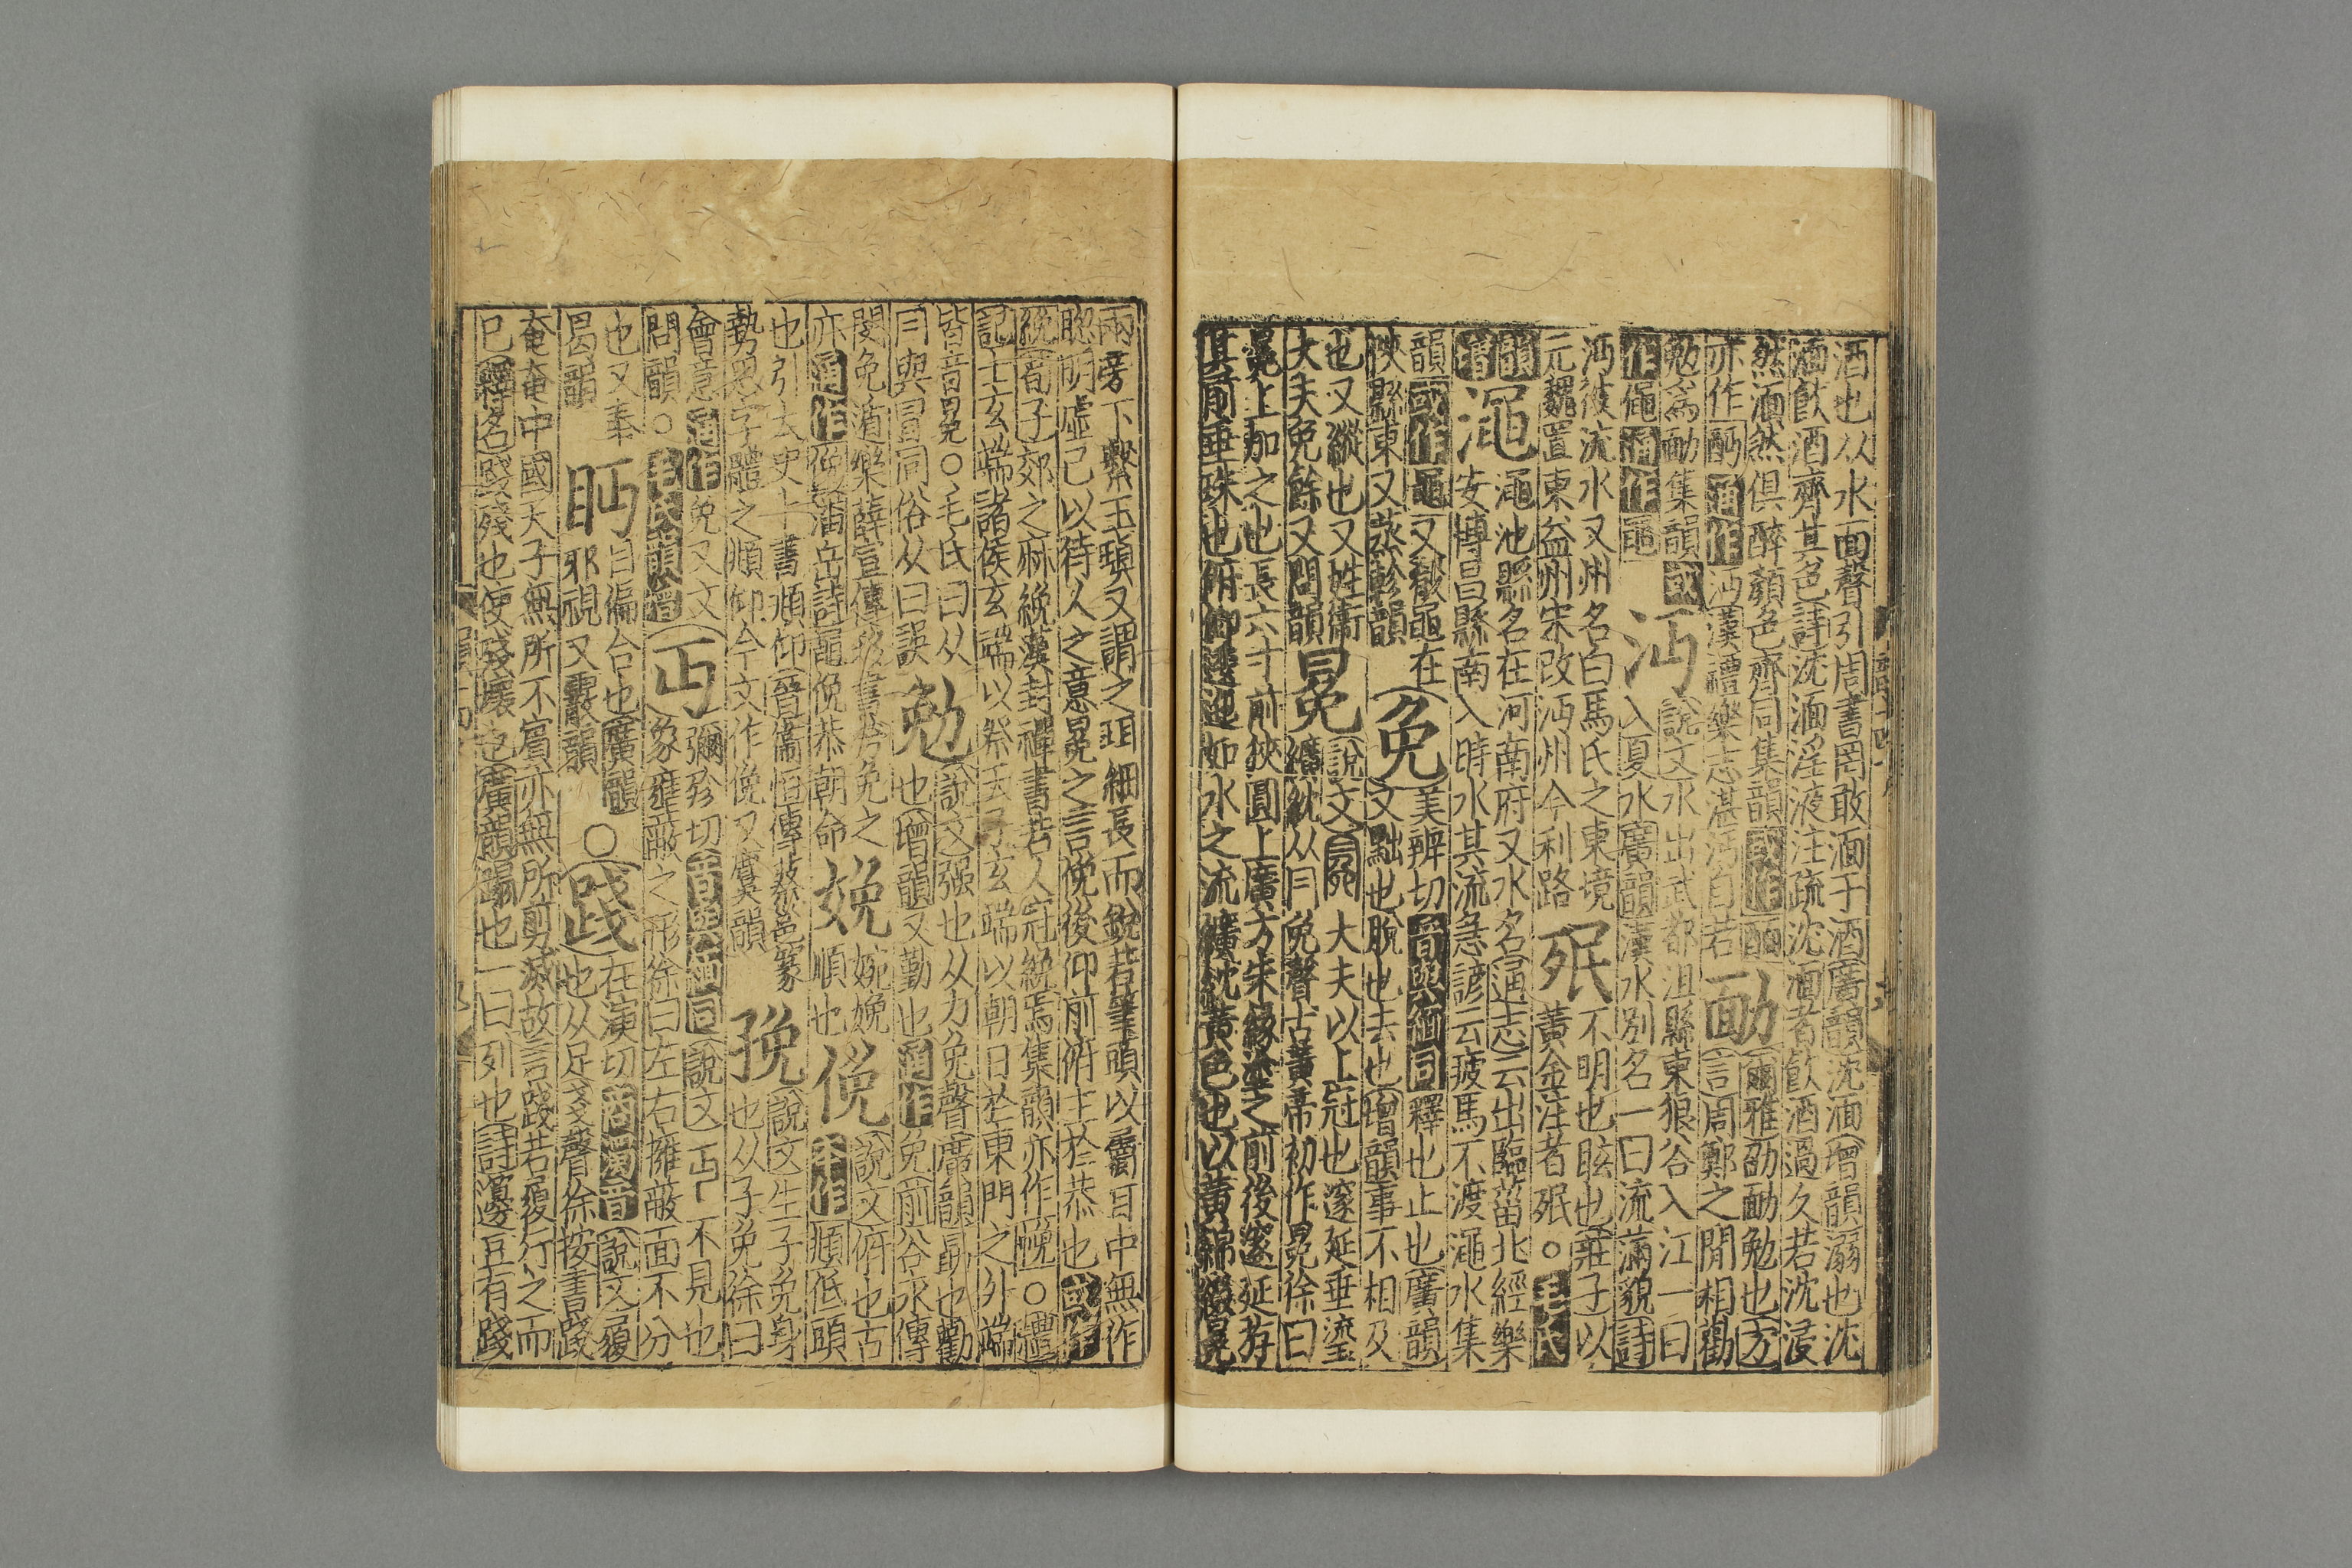 酒也从水面聲引周書罔敢湎于酒廣韻沈湎增韻溺也沈
湎飲酒齊其色詩沈湎淫液注疏沈湎者飲酒過久若沈浸
然湎然俱醉顏色齊同集韻或作
亦作通作沔漢禮樂志湛沔自若
勔
爾雅劭勔勉也方
言周鄭之閒相勸
勉為勔集韻或
作僶通作黽
沔
說文水出武都沮縣東狼谷入江一曰
入夏水廣韻漢水別名一曰流滿貌詩
沔彼流水又州名白馬氏之東境
元魏置東益州宋改沔州今利路
不明也眩也莊子以
黃金注者○毛氏
韻增
澠
澠池縣名在河南府又水名通志云出臨菑北經樂
安博昌縣南入時水其流急諺云疲馬不渡澠水集
韻或作黽又黽在
陜縣東又蒸軫韻
免
美辨切音與緬同釋也止也廣韻
文黜也脫也去也增韻事不相及
也又縱也又姓衛
大夫免餘又問韻
冕
說文冕大夫以上冠也邃延垂瑬
纊紞从冃免聲古黃帝初作冕徐曰
冕上加之也長六寸前狹圓上廣方朱緣塗之前後邃延斿
其前垂珠也俯仰逶迤如水之流纊紞黃色也以黃綿綴冕
兩旁下繫玉瑱又謂之珥細長而銳若筆頭以屬目中無作
聰明虛己以待人之意冕之言俛後仰前俯主於恭也或作
絻荀子郊之麻絻漢封禪書若人冠絻焉集韻亦作○禮
記士玄端諸侯玄端以祭天子玄端以朝日於東門之外端
皆音冕○毛氏曰从
冃與冒同俗从曰誤
勉
說文强也从力免聲廣韻勗也勸
也增韻又勤也通作免前谷永傳
閔免遁樂薛宣傳移書勞免之
亦通作俛潘岳詩黽俛恭朝命
娩
婉娩
順也
俛
說文俯也古
本作頫低頭
也引太史卜書頫仰晉衛恒傳蔡邕篆
勢思字體之頫仰今文作俛又麌韻
㝃
說文生子免身
也从子免徐曰
會意通作免又文
問韻○毛氏韻增
丏
彌殄切音與緬同說文丏不見也
象雍蔽之形徐曰左右擁蔽面不分
也又奉
曷韻
眄
目偏合也廣韻
邪視又霰韻
○
踐
在演切商濁音說文履
也从足戔聲徐按書踐
奄奄中國天子無所不賓亦無所剪滅故言踐若履行之而
已釋名踐殘也使殘壞也廣韻蹋也一曰列也詩籩豆有踐